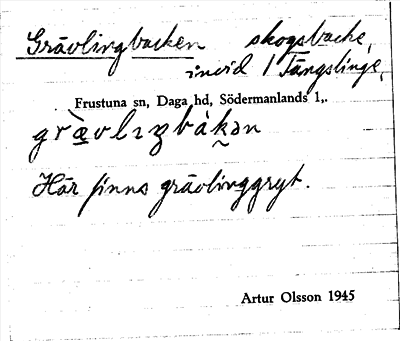 Grävlingbacken skogsbacke,
invid 1 Tängslinge,
Frustuna sn, Daga hd, Södermanlands l,.
Här finns grävlinggryt.
Artur Olsson 1945